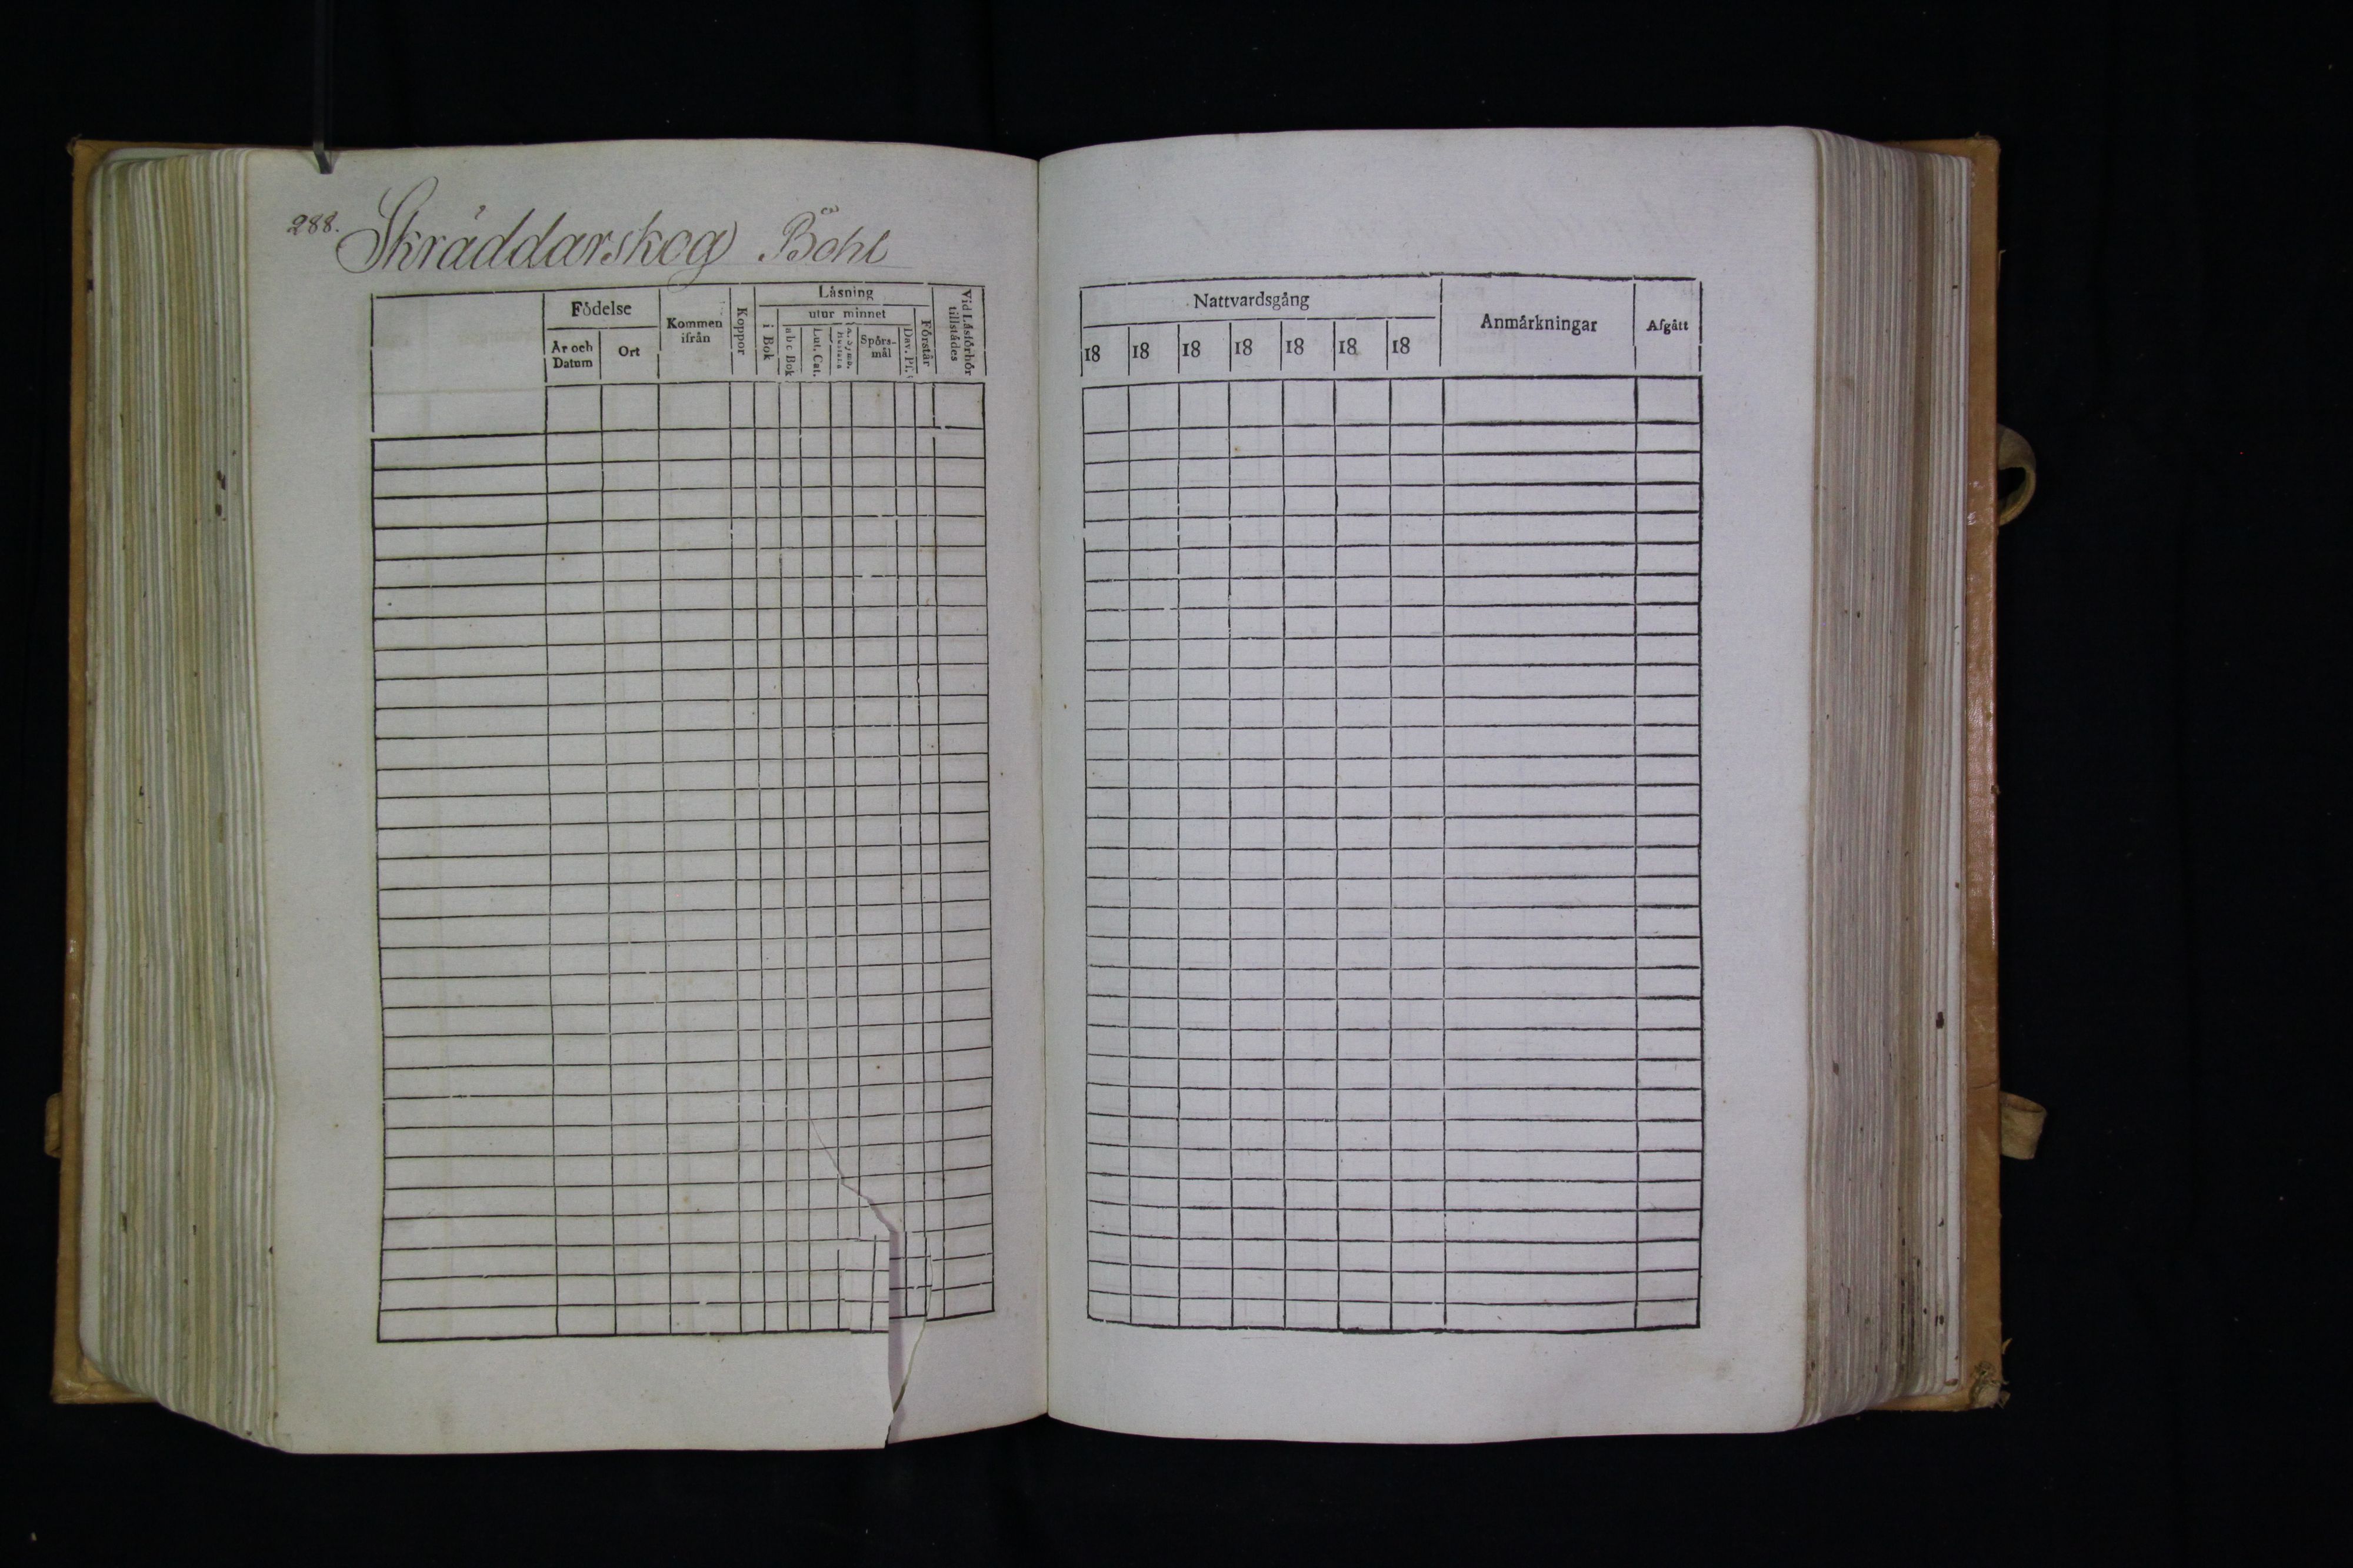 288. Skräddarskog Böhl
Födelse
År och Datum
Ort
Kommen ifrån
Koppor
Läsning
i Bok
utur minnet
a b c Bok
Lut. Cat.
Spörs-mål
Dav. Ps.
Förstår
Vid Läsförhör tillstädes
Nattvardsgång
18 18 18 18 18 18 18
Anmärkningar
Afgått